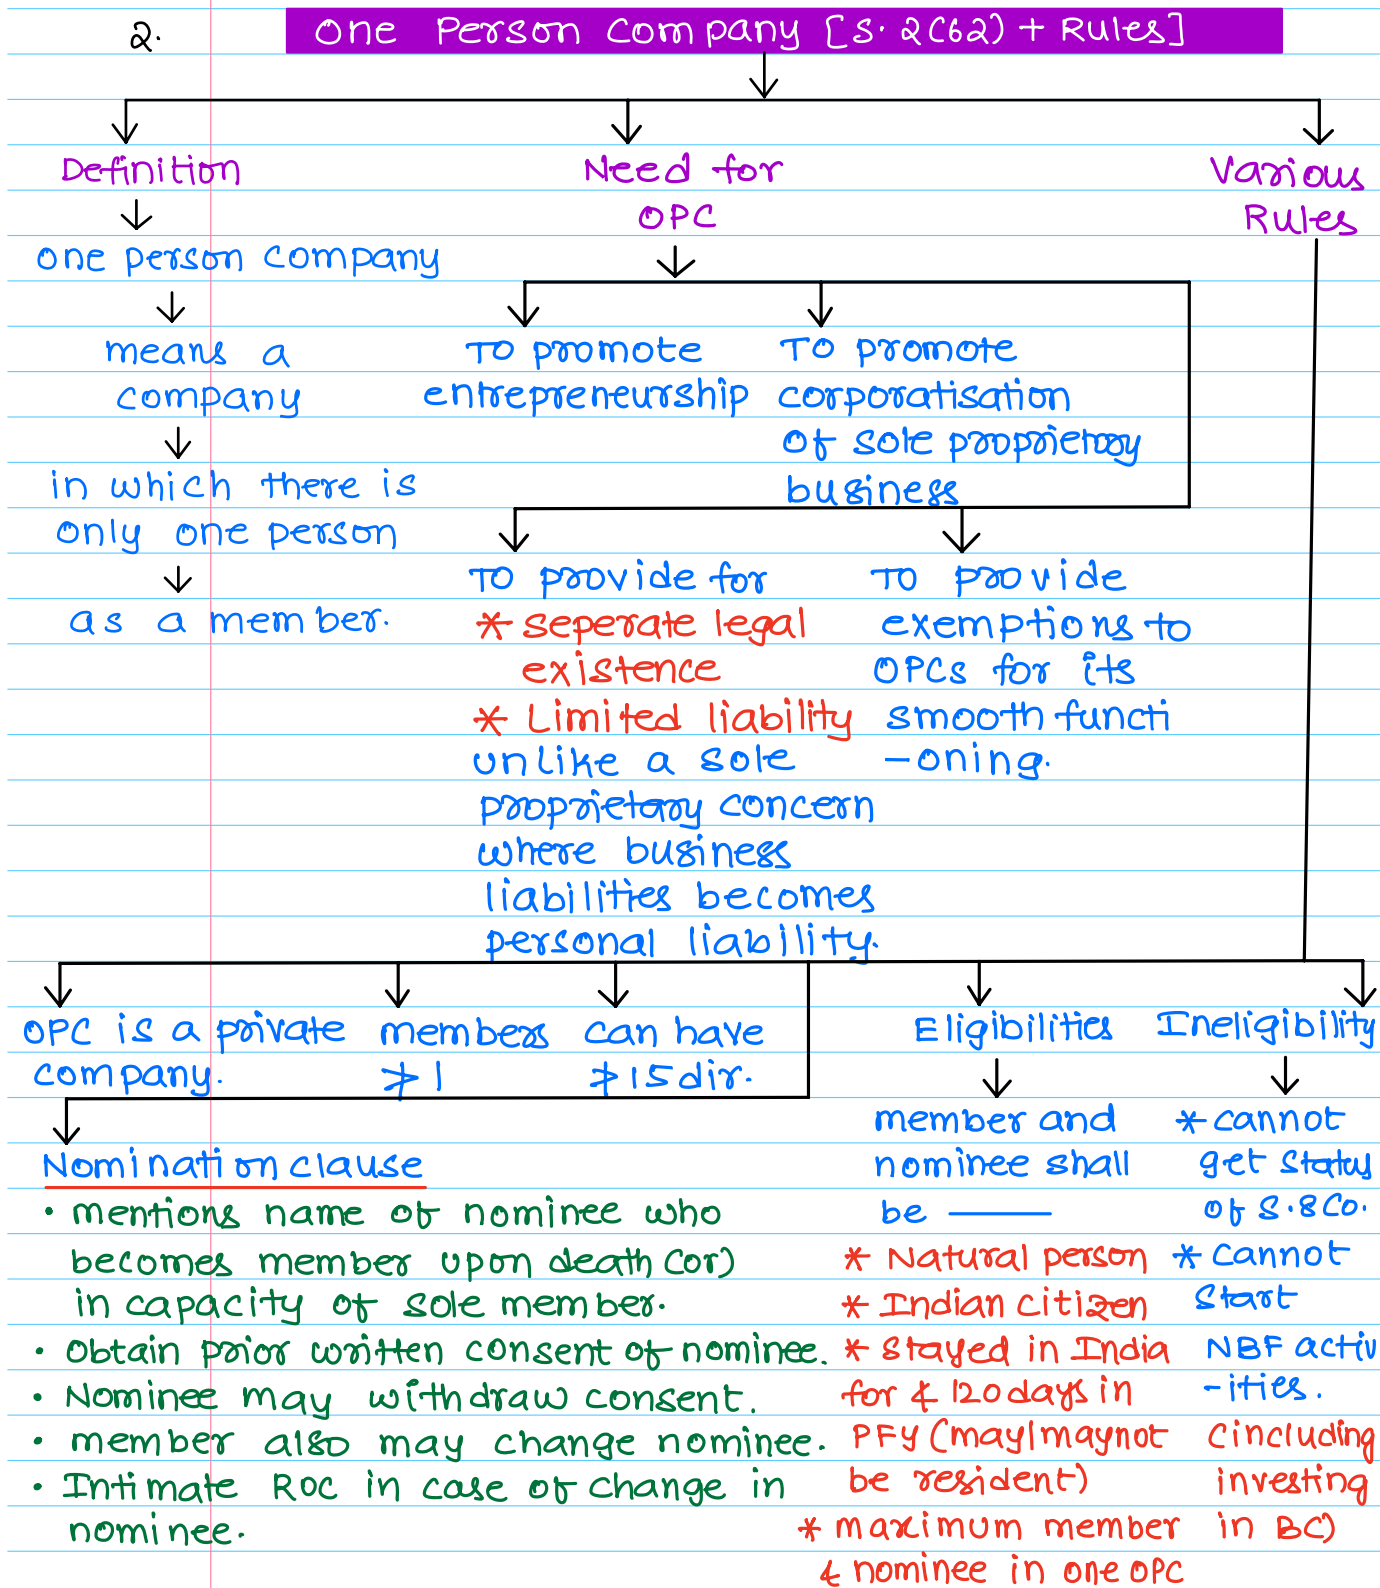 2.
One Person Company [S. 2(62) + Rules]
Definition
one person company
means a
company
in which there is
only one person
as a member.
Need for
OPC
To promote
entrepreneurship
To promote
corporatisation
of sole proprietory
business
To provide for
* seperate legal
existence
* Limited liability
unlike a sole
proprietary concern
where business
liabilities becomes
personal liability.
To provide
exemptions to
OPCs for its
smooth functi
-oning.
Various
Rules
OPC is a private
company.
members
≯ 1
can have
≯ 15 dir.
Nomination clause
• mentions name of nominee who
becomes member upon death (or)
in capacity of sole member.
• Obtain prior written consent of nominee.
• Nominee may withdraw consent.
• member also may change nominee.
• Intimate ROC in case of change in
nominee.
Eligibilities
member and
nominee shall
be ——
* Natural person
* Indian citizen
* Stayed in India
for ≮ 120 days in
PFY (may/maynot
be resident)
* maximum member
& nominee in one OPC
Ineligibility
* cannot
get status
of S.8 Co.
* cannot
start
NBF activ
-ities.
(including
investing
in BC)